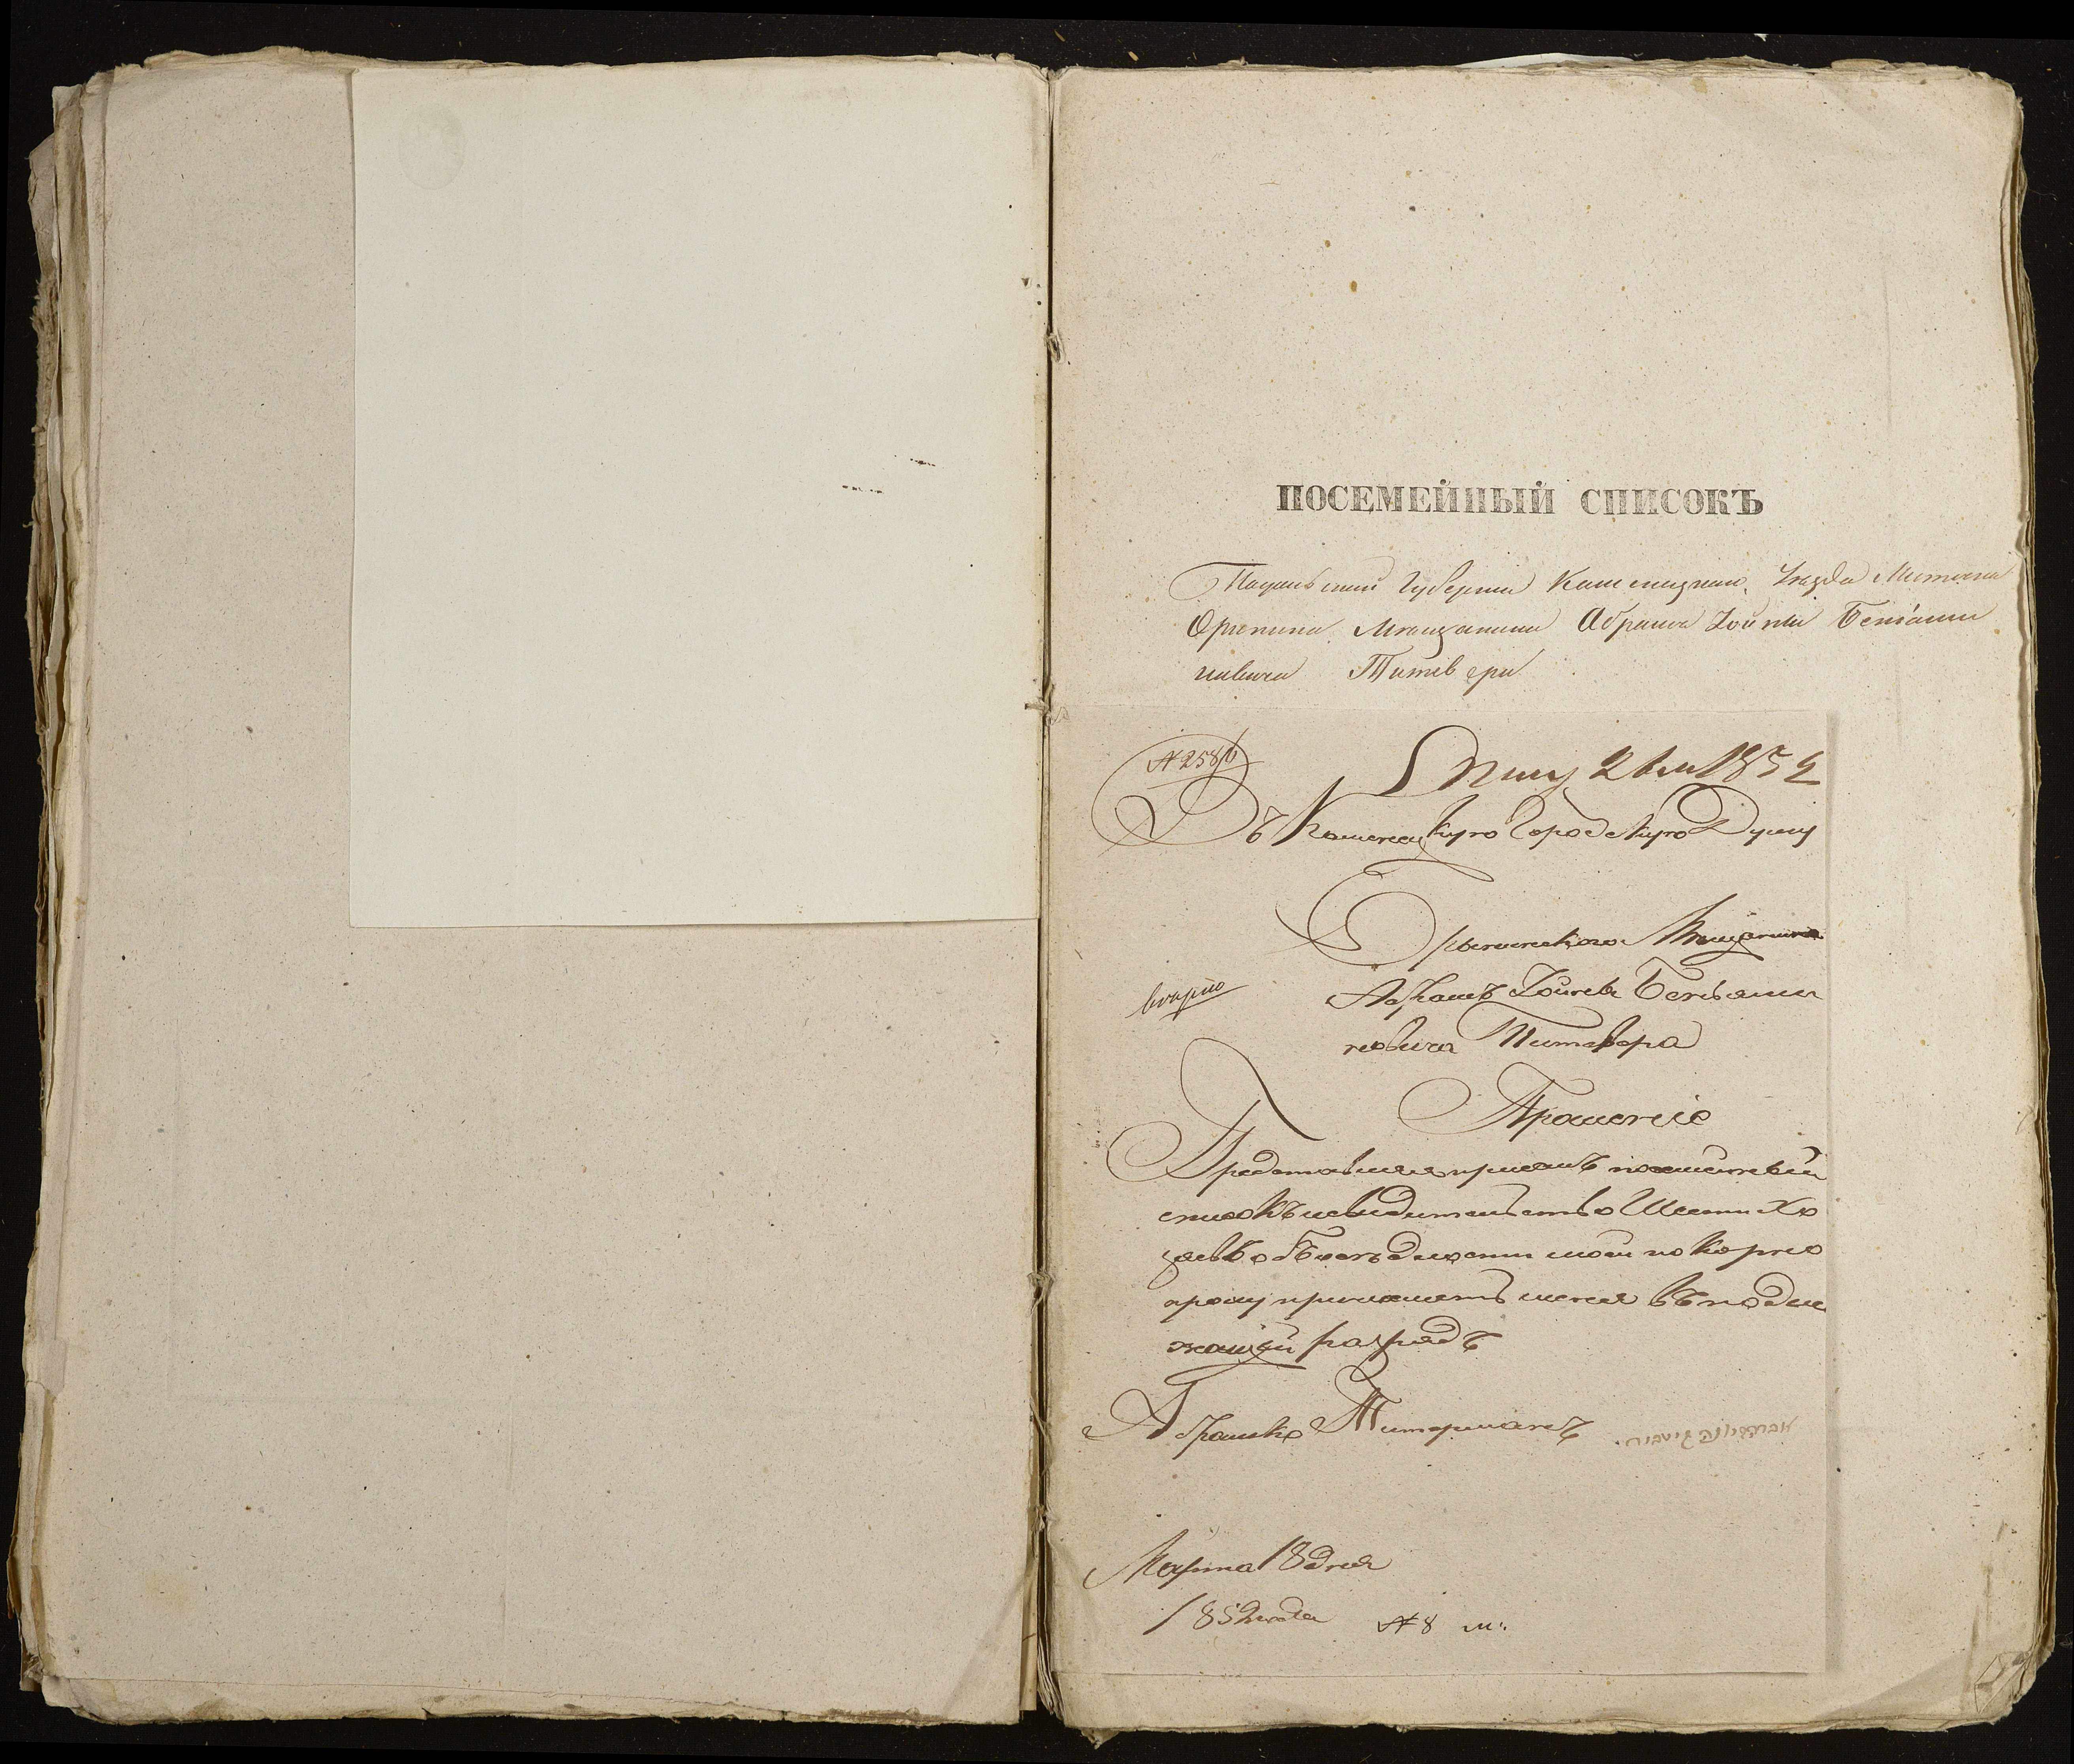 ПОСЕМЕЙНЫЙ СПИСОКЪ
Подольской Губерніи Каменецкаго Уезда Мѣстечка
Орынина Мѣщанина Абрама Іойны Беніами
новича Титвера
№ 2586
2 1852
Въ Каменецкую Городскую Думу
Орынинского Мещанина
Абрамъ Іойнева Беньями
новича Титвера
Прошеніе
Представляя присемъ посемейный
списокъ и свидетельство Шести Хо
зяевъ о бъоседлости моей покорно
прошу причислить меня въ подле
жащій разрядъ
Абрамко Титерманъ
Марта 18 дня
1852 года № 8